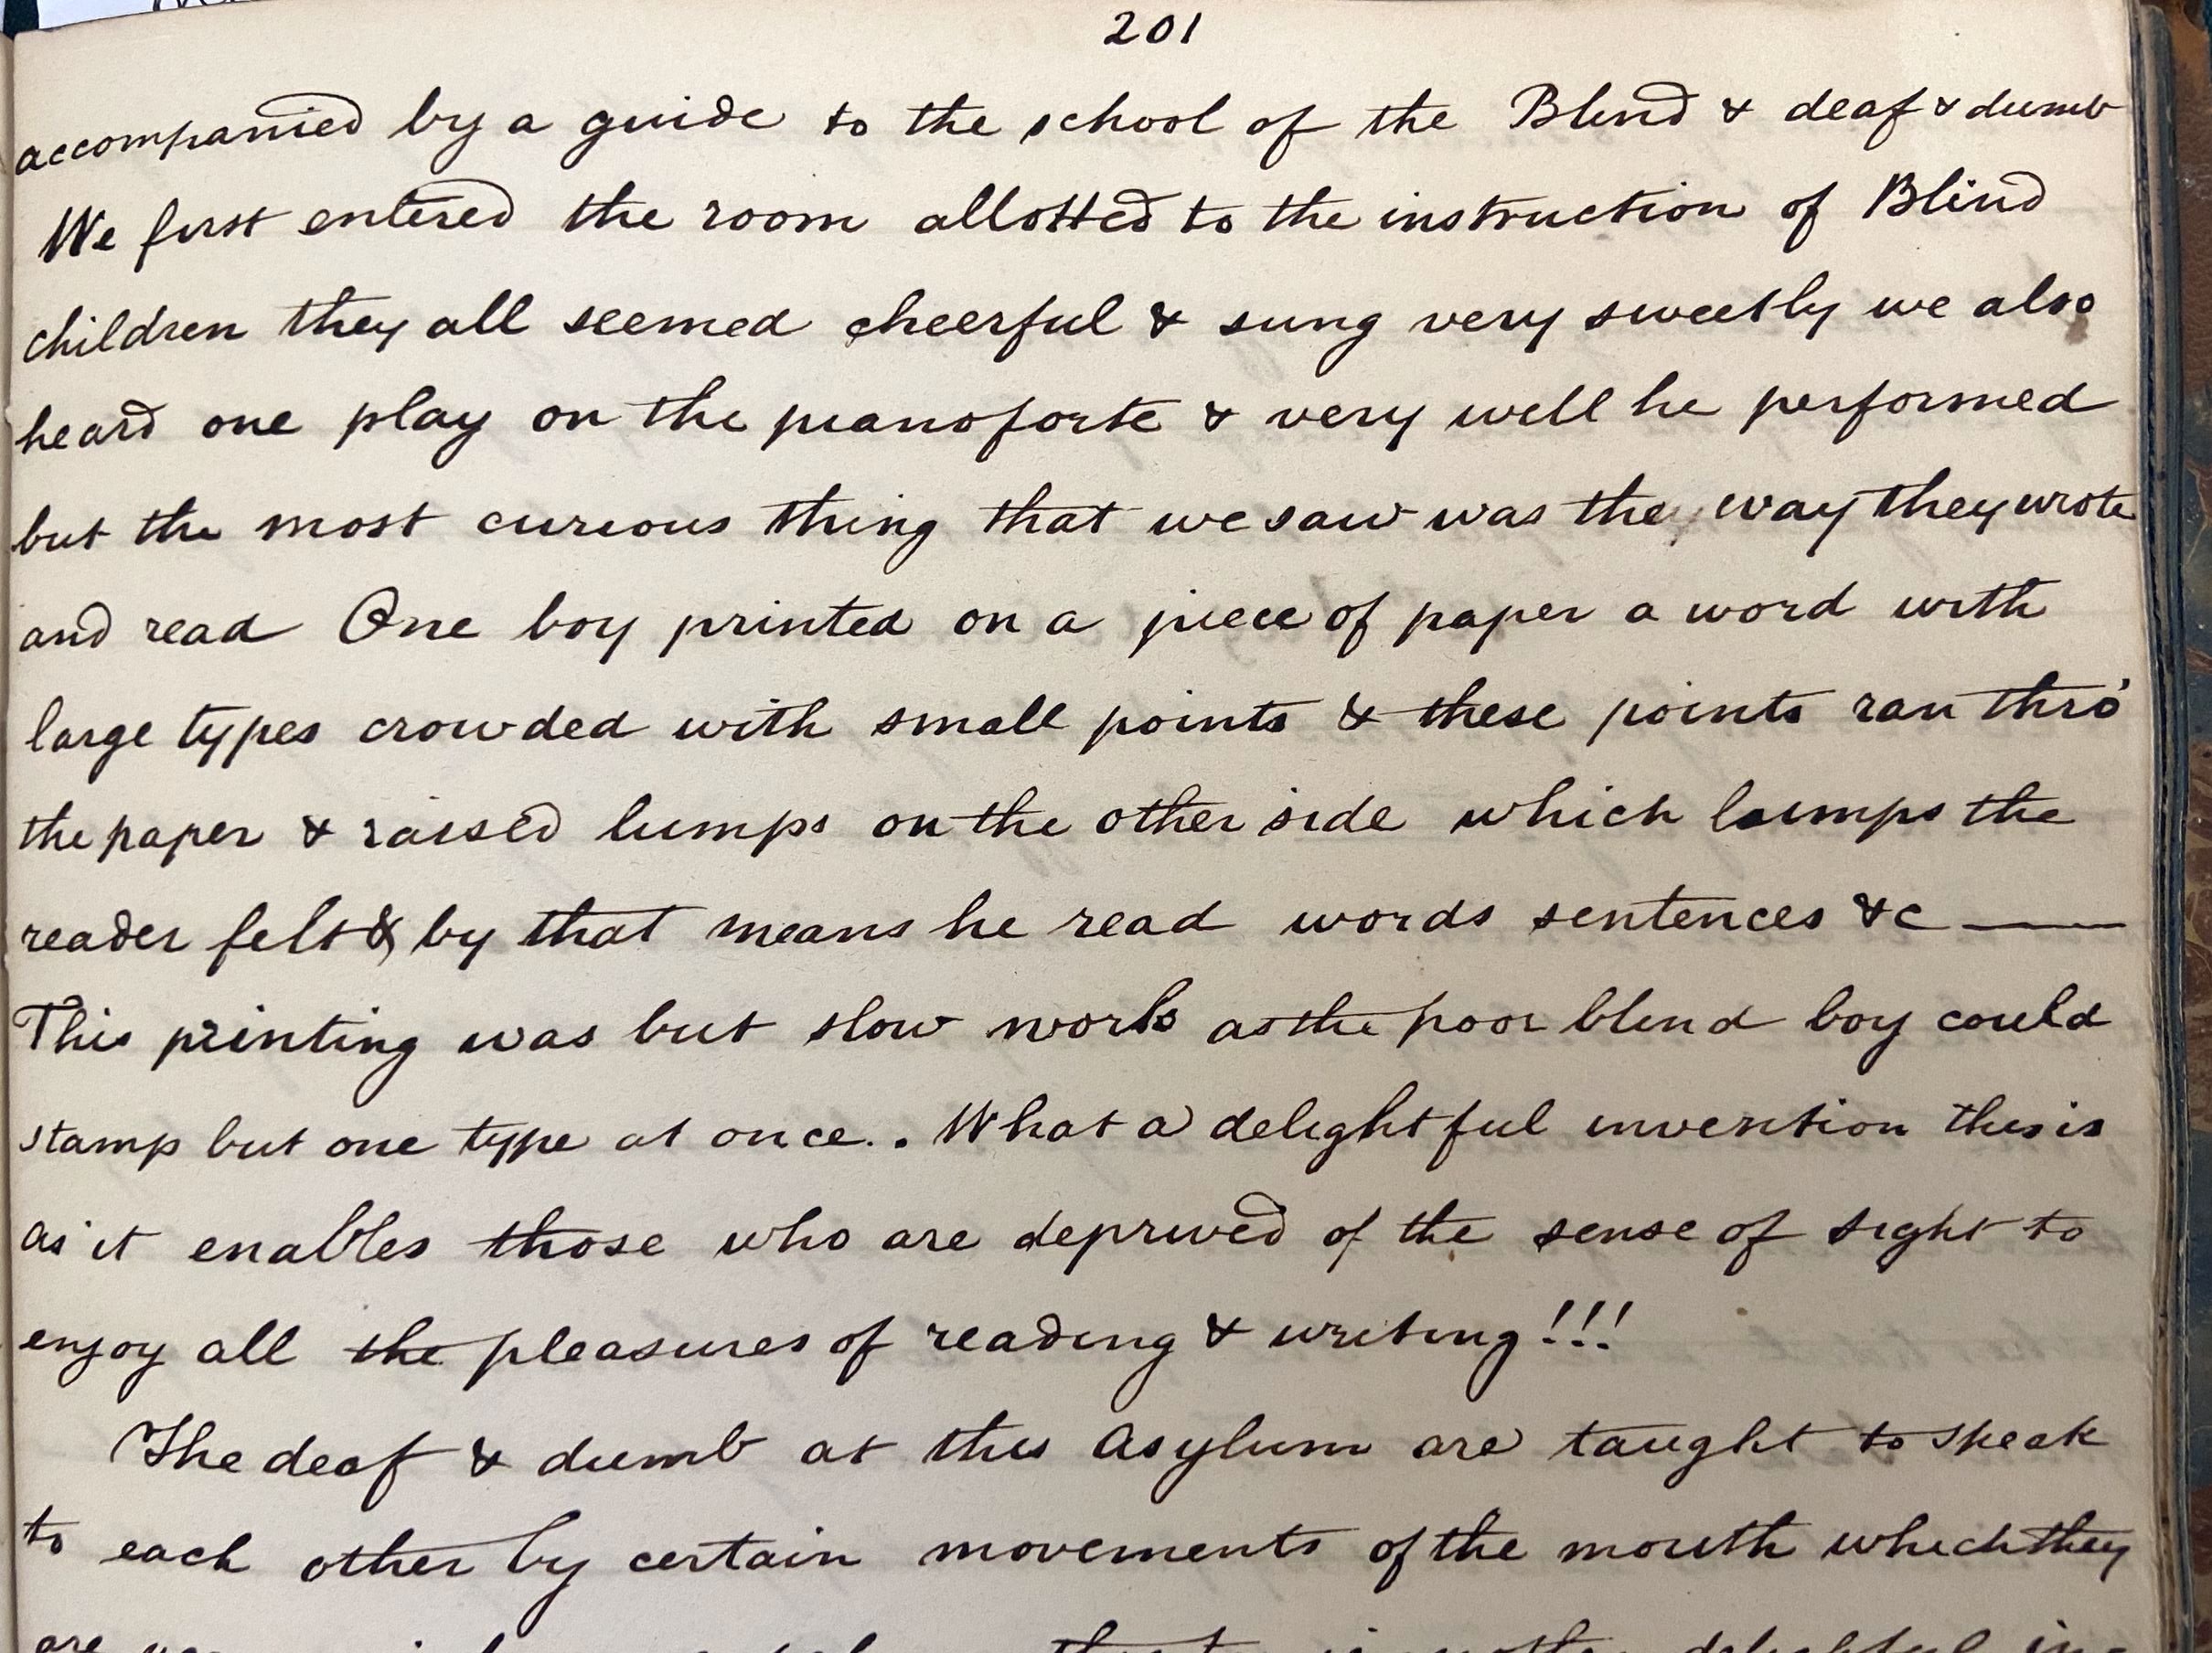 201
accompanied by a guide to the school of the Blind & deaf & dumb
We first entered the room allotted to the instruction of Blind
children they all seemed cheerful & sung very sweetly we also
heard one play on the pianoforte & very well he performed
but the most curious thing that we saw was the way they wrote
and read One boy printed on a piece of paper a word with
large types crowded with small points & these points ran thro'
the paper & raised lumps on the other side which lumps the
reader felt & by that means he read words sentences &c —
This printing was but slow work as the poor blind boy could
stamp but one type at once.. What a delightful invention this is
as it enables those who are deprived of the sense of sight to
enjoy all the pleasures of reading & writing!!!
The deaf & dumb at this Asylum are taught to speak
to each other by certain movements of the mouth which they
are delightful in-